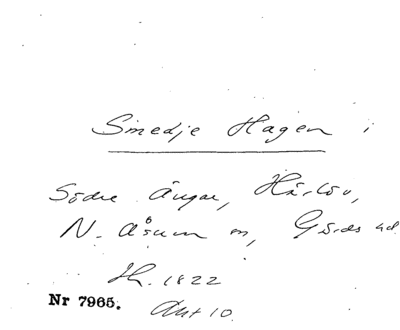 Smedje Hagen i
Södre Ängar, Härlöv,
N. Åsum sn, Gärds hd
Hh. 1822
Nr 7965.
Akt 10.